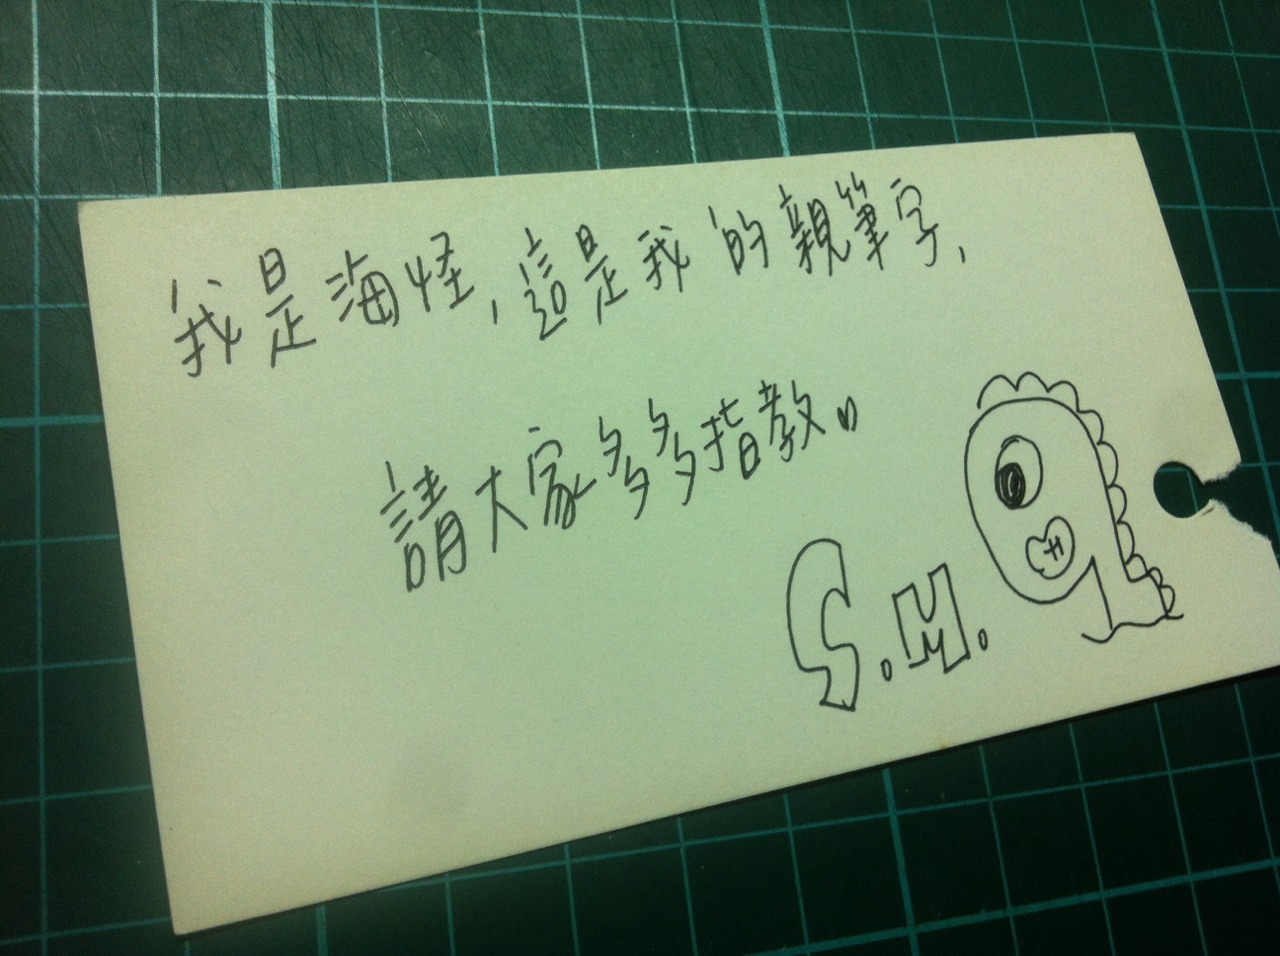 我是海怪,這是我的親筆字,
請大家多多指教。
S.M.